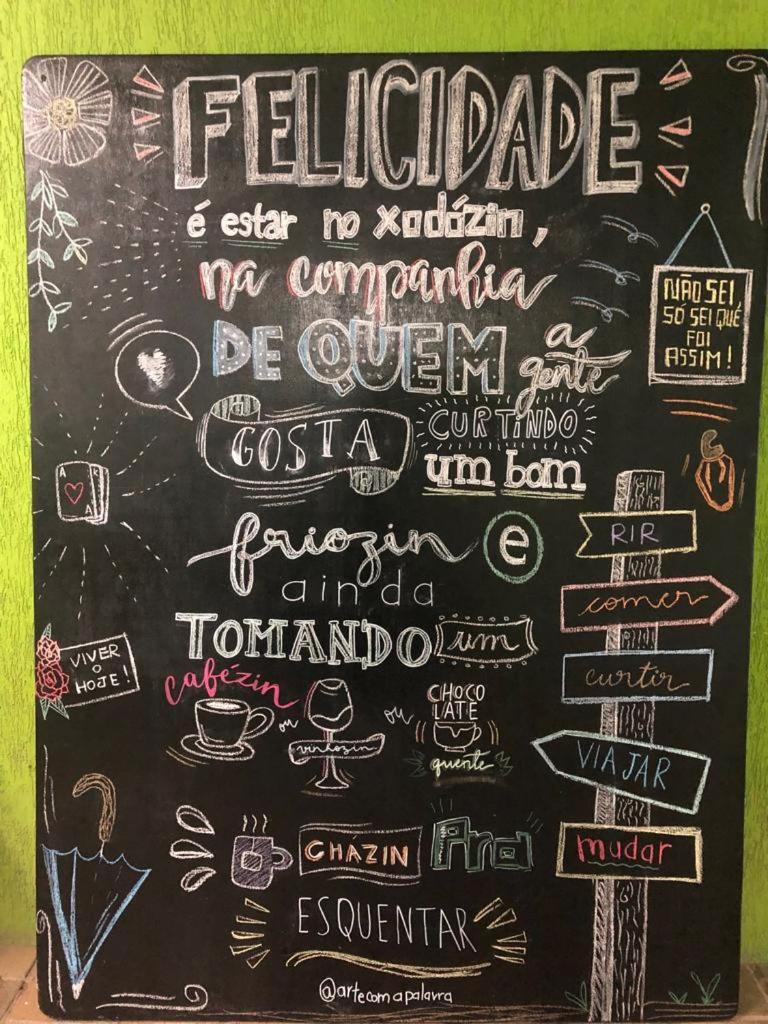 FELICIDADE
é estar no xodózin,
na companhia
DE QUEM a gente
GOSTA CURTINDO
um bom
friozin e
ainda
TOMANDO um
cafézin ou vinhozin ou CHOCOLATE quente
CHAZIN Pra
ESQUENTAR
@artecomapalavra
NÃO SEI
SÓ SEI QUE
FOI
ASSIM!
A
A
K
VIVER
O
HOJE!
RIR
comer
curtir
VIAJAR
mudar